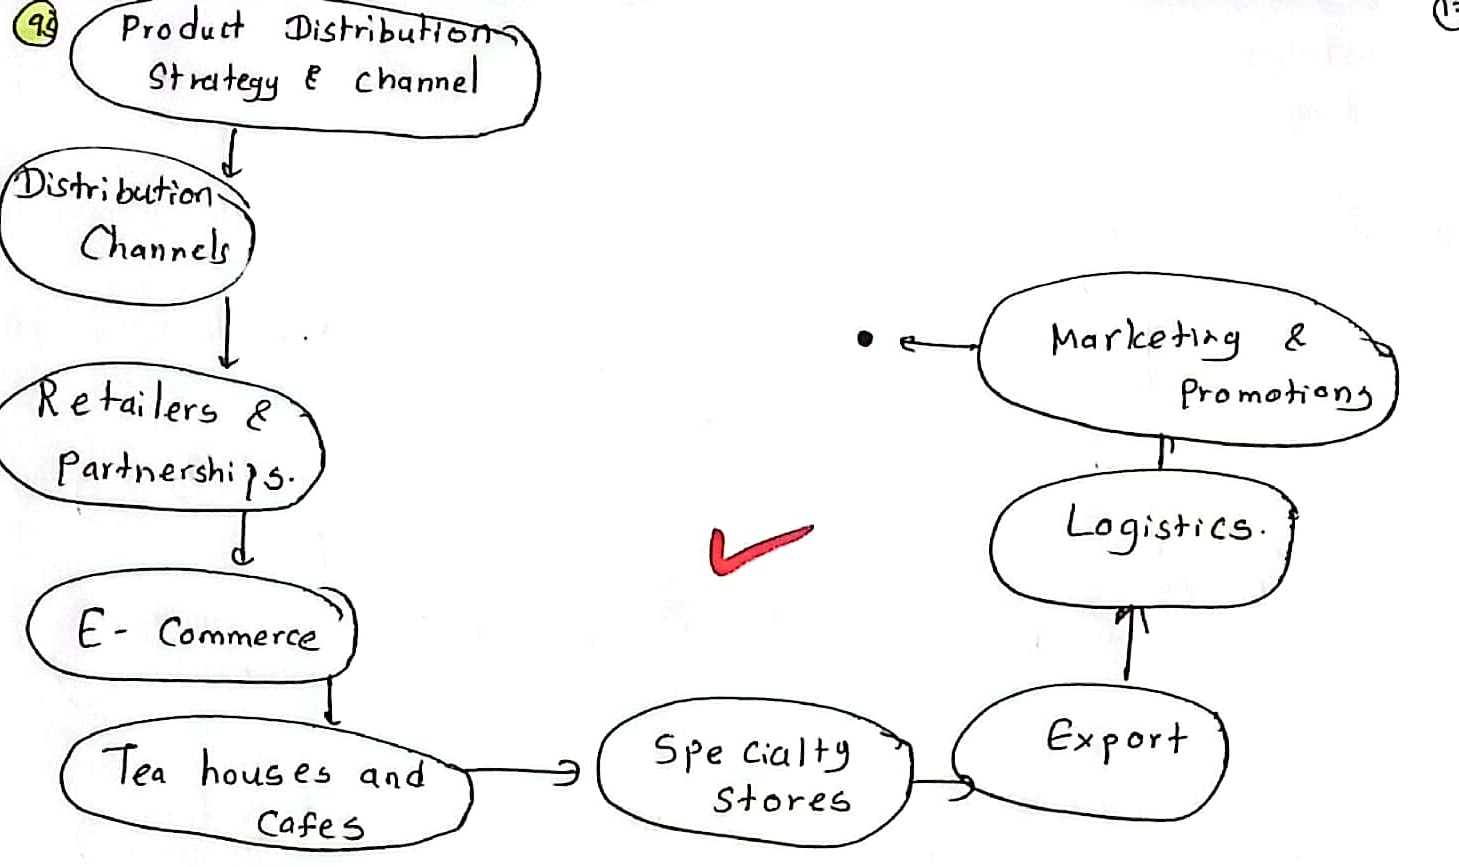 Product Distribution
Strategy & channel
Distribution
Channels
Retailers &
Partnerships.
E- Commerce
Tea houses and
Cafes
Specialty
Stores
Export
Logistics.
Marketing &
Promotions